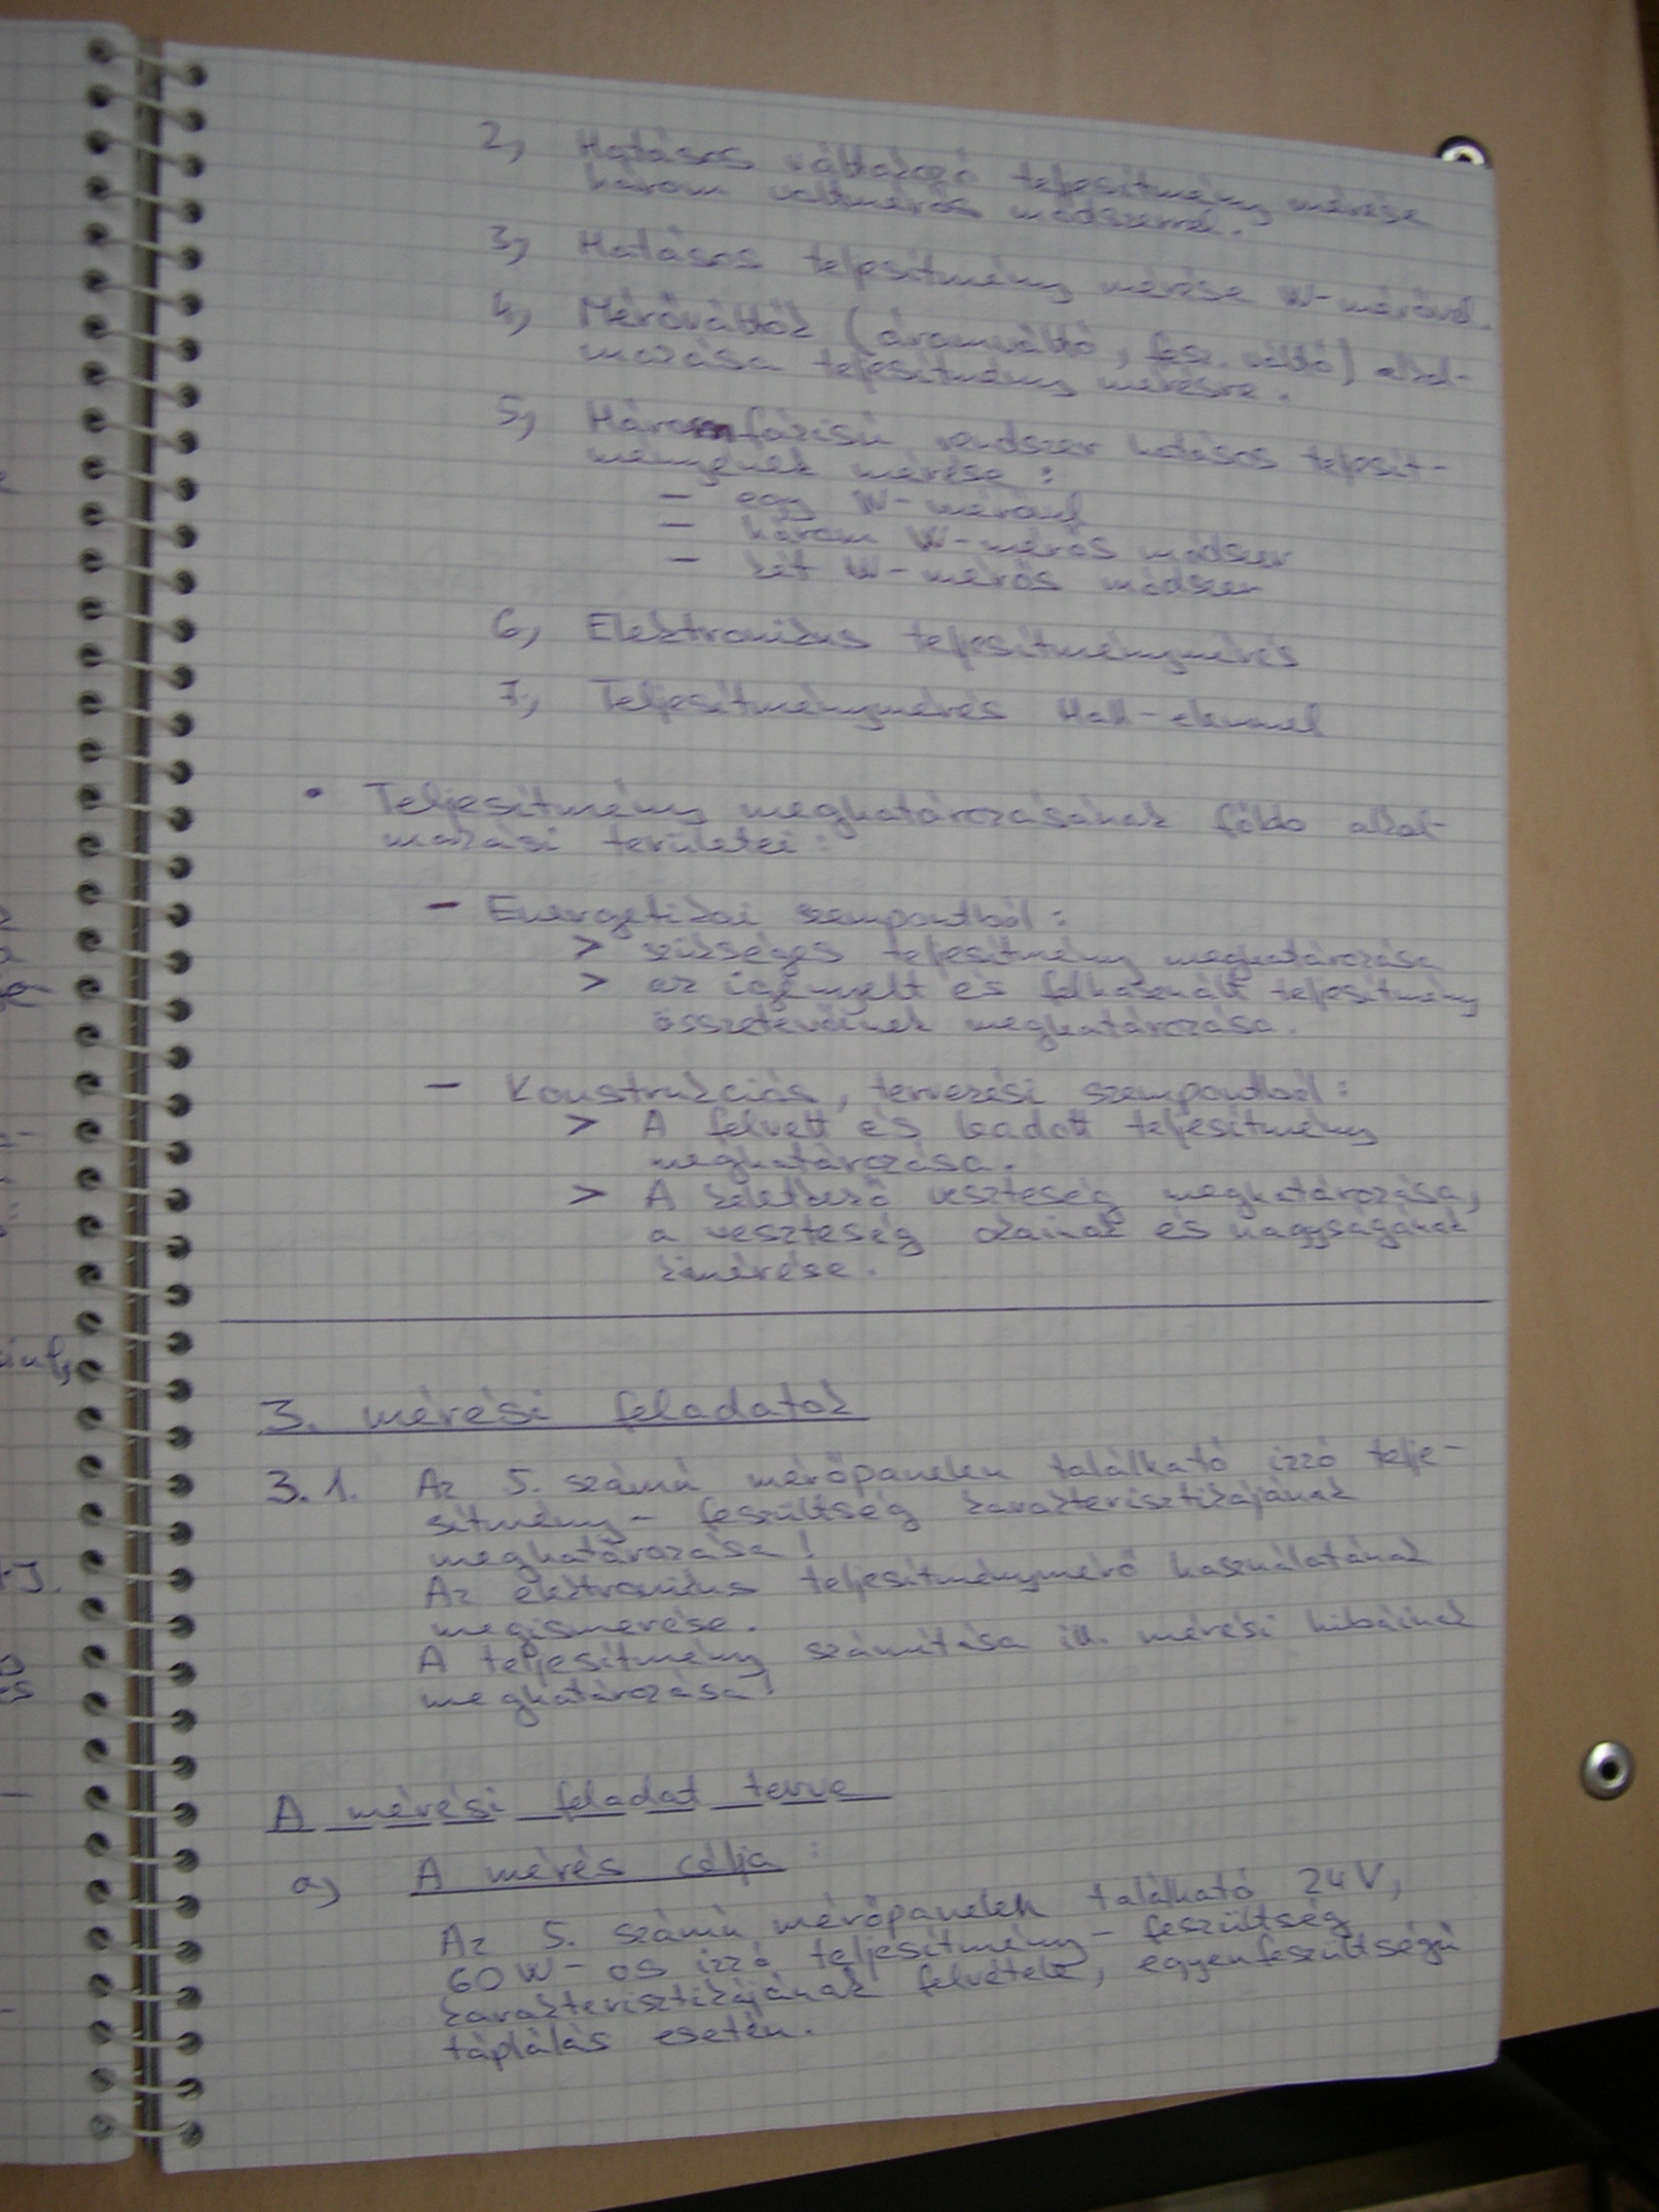 2, Hatásos váltakozó teljesítmény mérése
három voltmérős módszerrel.
3, Hatásos teljesítmény mérése W-mérővel.
4, Mérőváltók (áramváltó, fesz. váltó) alkal-
mazása teljesítmény mérésre.
5, Háromfázisú rendszer hatásos teljesít-
ményének mérése:
- egy W-mérővel
- három W-mérős módszer
- két W-mérős módszer
6, Elektronikus teljesítménymérés
7, Teljesítménymérés Hall-elemmel
• Teljesítmény meghatározásának főbb alkal-
mazási területei:
- Energetikai szempontból:
> szükséges teljesítmény meghatározása
> az igényelt és felhasznált teljesítmény
összetevőinek meghatározása.
- Konstrukciós, tervezési szempontból:
> A felvett és leadott teljesítmény
meghatározása.
> A keletkező veszteség meghatározása,
a veszteség okainak és nagyságának
kimérése.
3. mérési feladatok
3.1. Az 5. számú mérőpanelen található izzó telje-
sítmény- feszültség karakterisztikájának
meghatározása!
Az elektronikus teljesítménymérő használatának
megismerése.
A teljesítmény számítása ill. mérési hibáinak
meghatározása!
A mérési feladat terve
a) A mérés célja:
Az 5. számú mérőpanelen található 24V,
60W-os izzó teljesítmény- feszültség
karakterisztikájának felvétele, egyenfeszültségű
táplálás esetén.